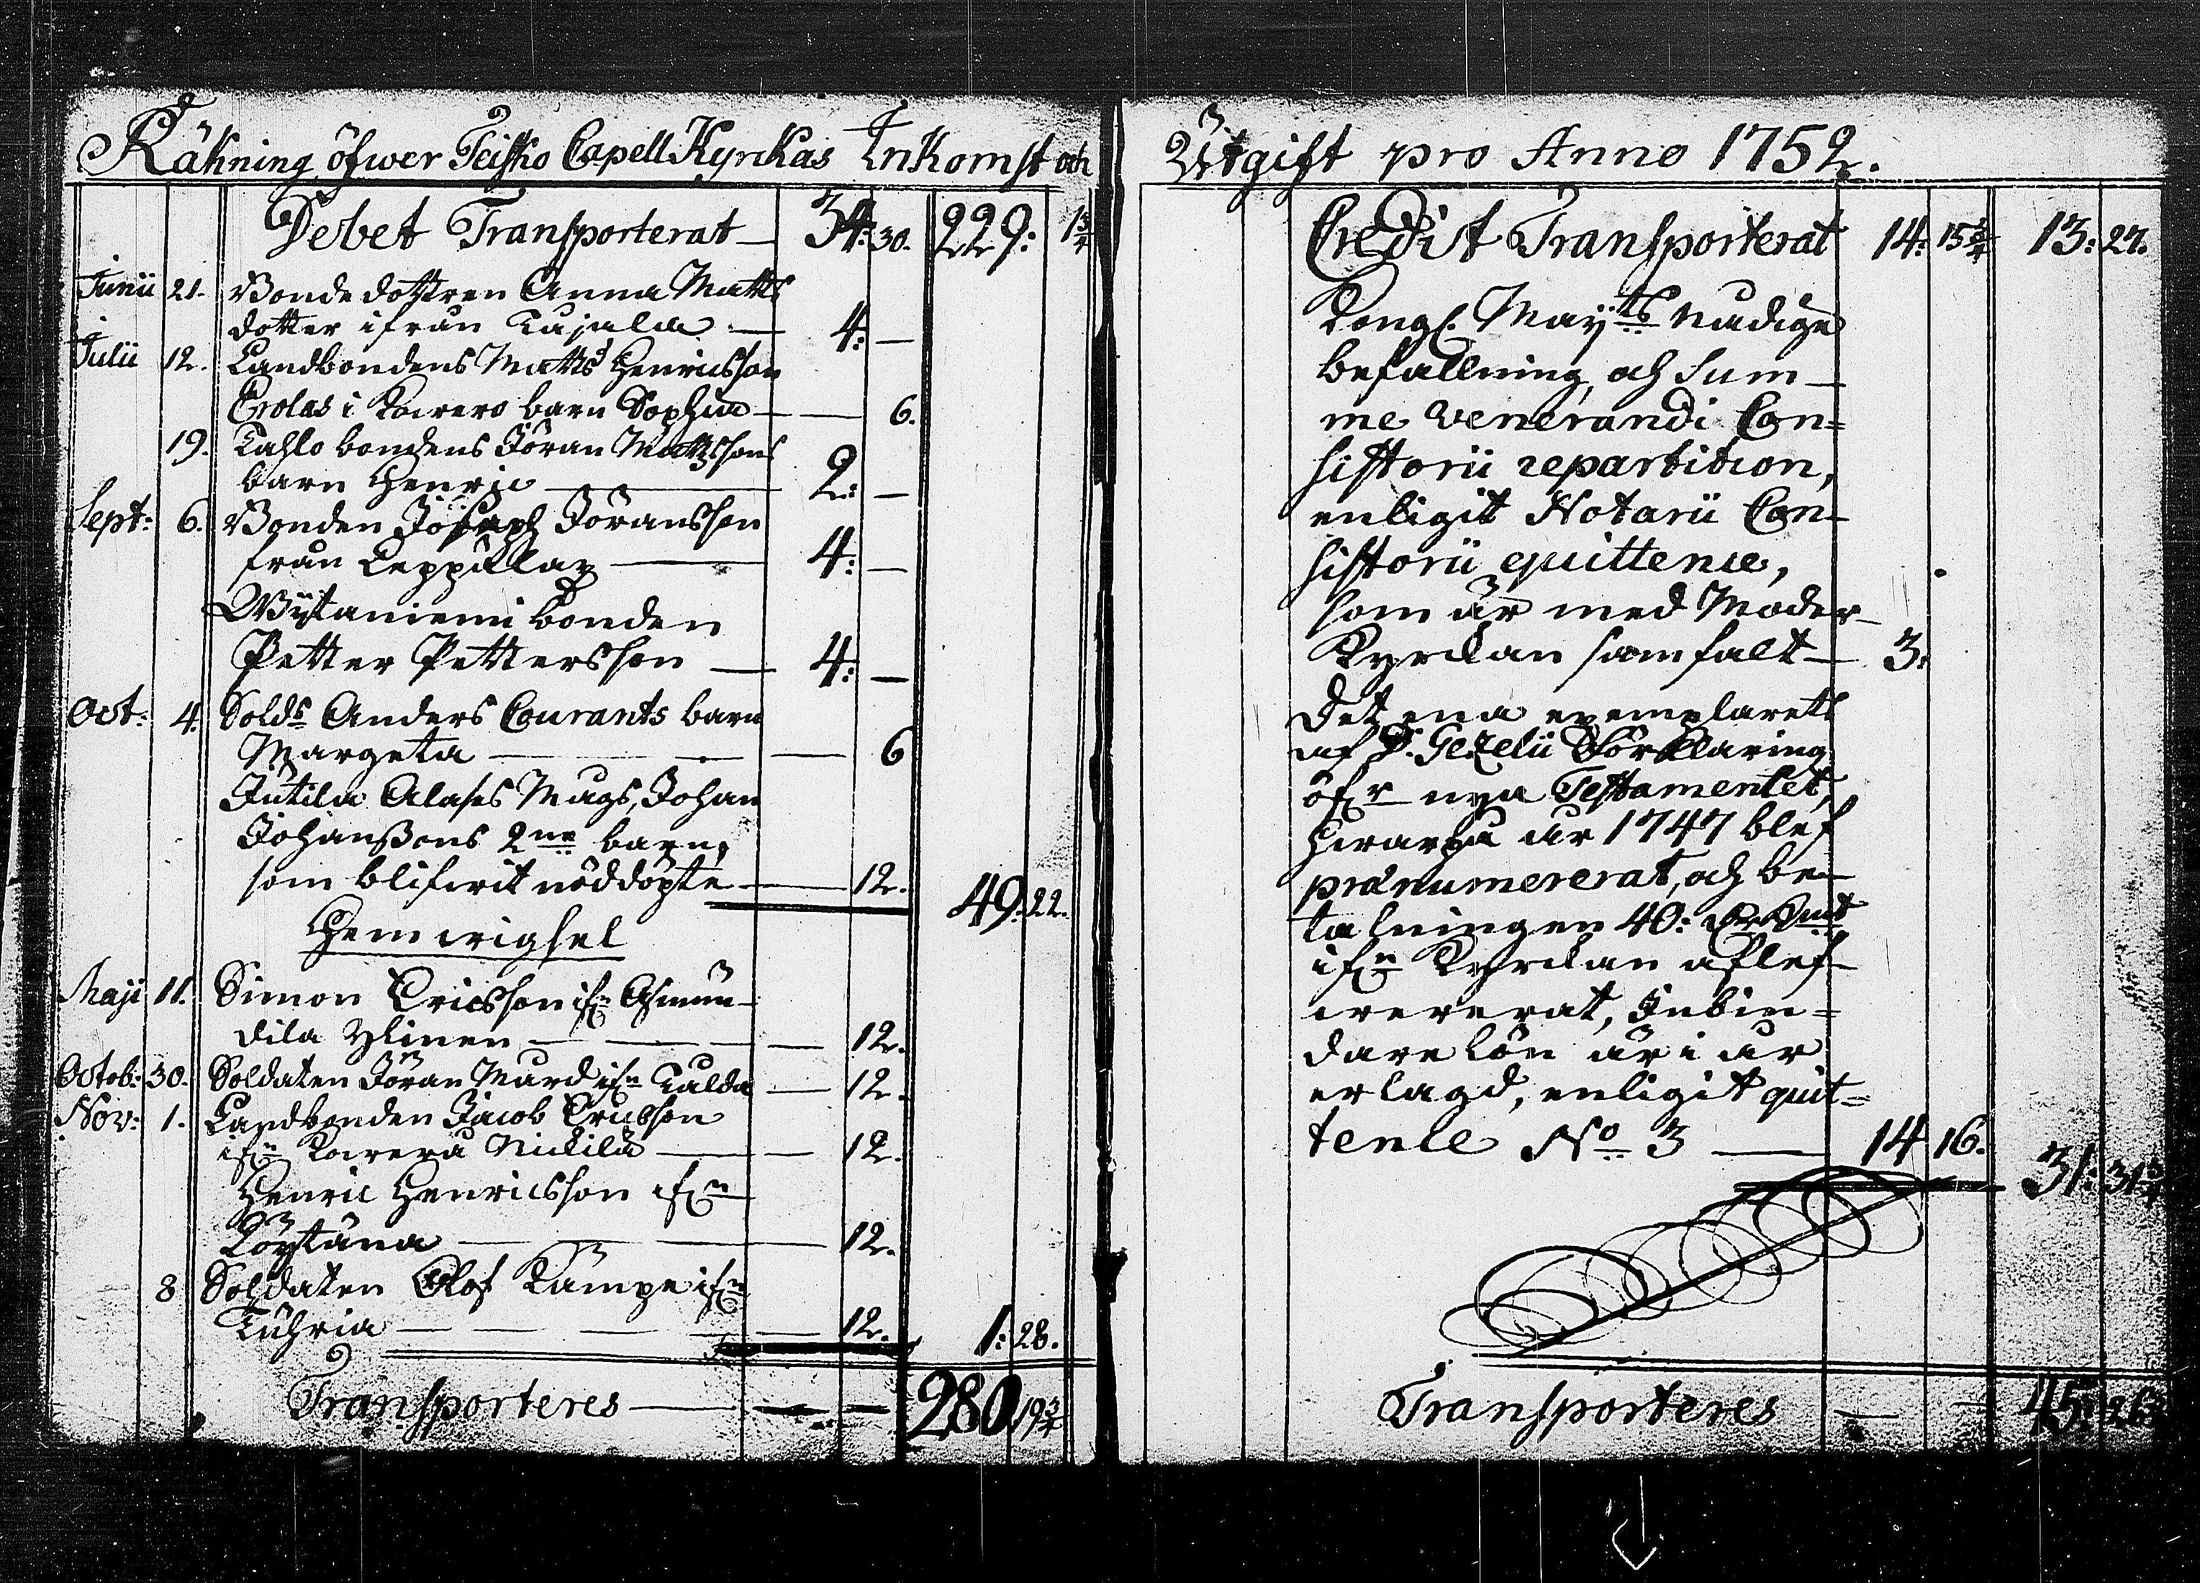 Räkning öfwer Teisko Capell Kyrckas Inkomst och
Debet Transporterat 34: 30. 229: 1 3/4
Junii 21. Bonde dottren Anna Matts
dotter ifrån Kajala 4: —
Julii 12. Landbondens Matts Henricsson
Erolas i Kawero barn Sophia 6.
19. Kahlo bondens Jöran Mattssons
barn Henric 2: —
Sept: 6. Bonden Joseph Jöransson
från Leppillax 4: —
Wÿtaniemi bonden
Petter Pettersson 4: —
Oct: 4. Solds Anders Courants barn
Margeta 6
Jutila Alases Mags, Johan
Johanßons 2ne barn,
som blifwit nöddöpte 12. 49: 22.
Hemwigsel
Maji 11. Simon Ericsson ifn Asmun-
dila Ylinen 12.
Octob: 30. Soldaten Jöran Murd ifn Kulda 12.
Nov: 1. Landbonden Jacob Ericsson
ifn Kawera Nickilä 12.
Henric Henricsson ifn
Köytänä 12.
8 Soldaten Olof Kämpe ifn
Kuhria 12. 1: 28.
Transporteres 280 19 3/4
Utgift pro Anno 1752.
Credit Transporterat 14: 15 3/4 13: 27.
Kongl. Mayts nådige
befallning, och Sum-
me venerandi Con=
sistorii repartition,
enligit Notarii Con-
sistorii quittence,
som är med Moder-
Kyrckan samfalt 3:
Det ena exemplaret
af D. Gezelii Förklaring
öfr nya Testamentet,
hwarpå år 1747 blef
prænumererat, och be-
talningen 40: dr Kmt
ifn Kyrckan aflef-
wererat, Inbin=
dare lön är i år
erlagd, enligit quit=
tence No 3 14 16. 31: 31 3/4
Transporteres 45: 26 3/4